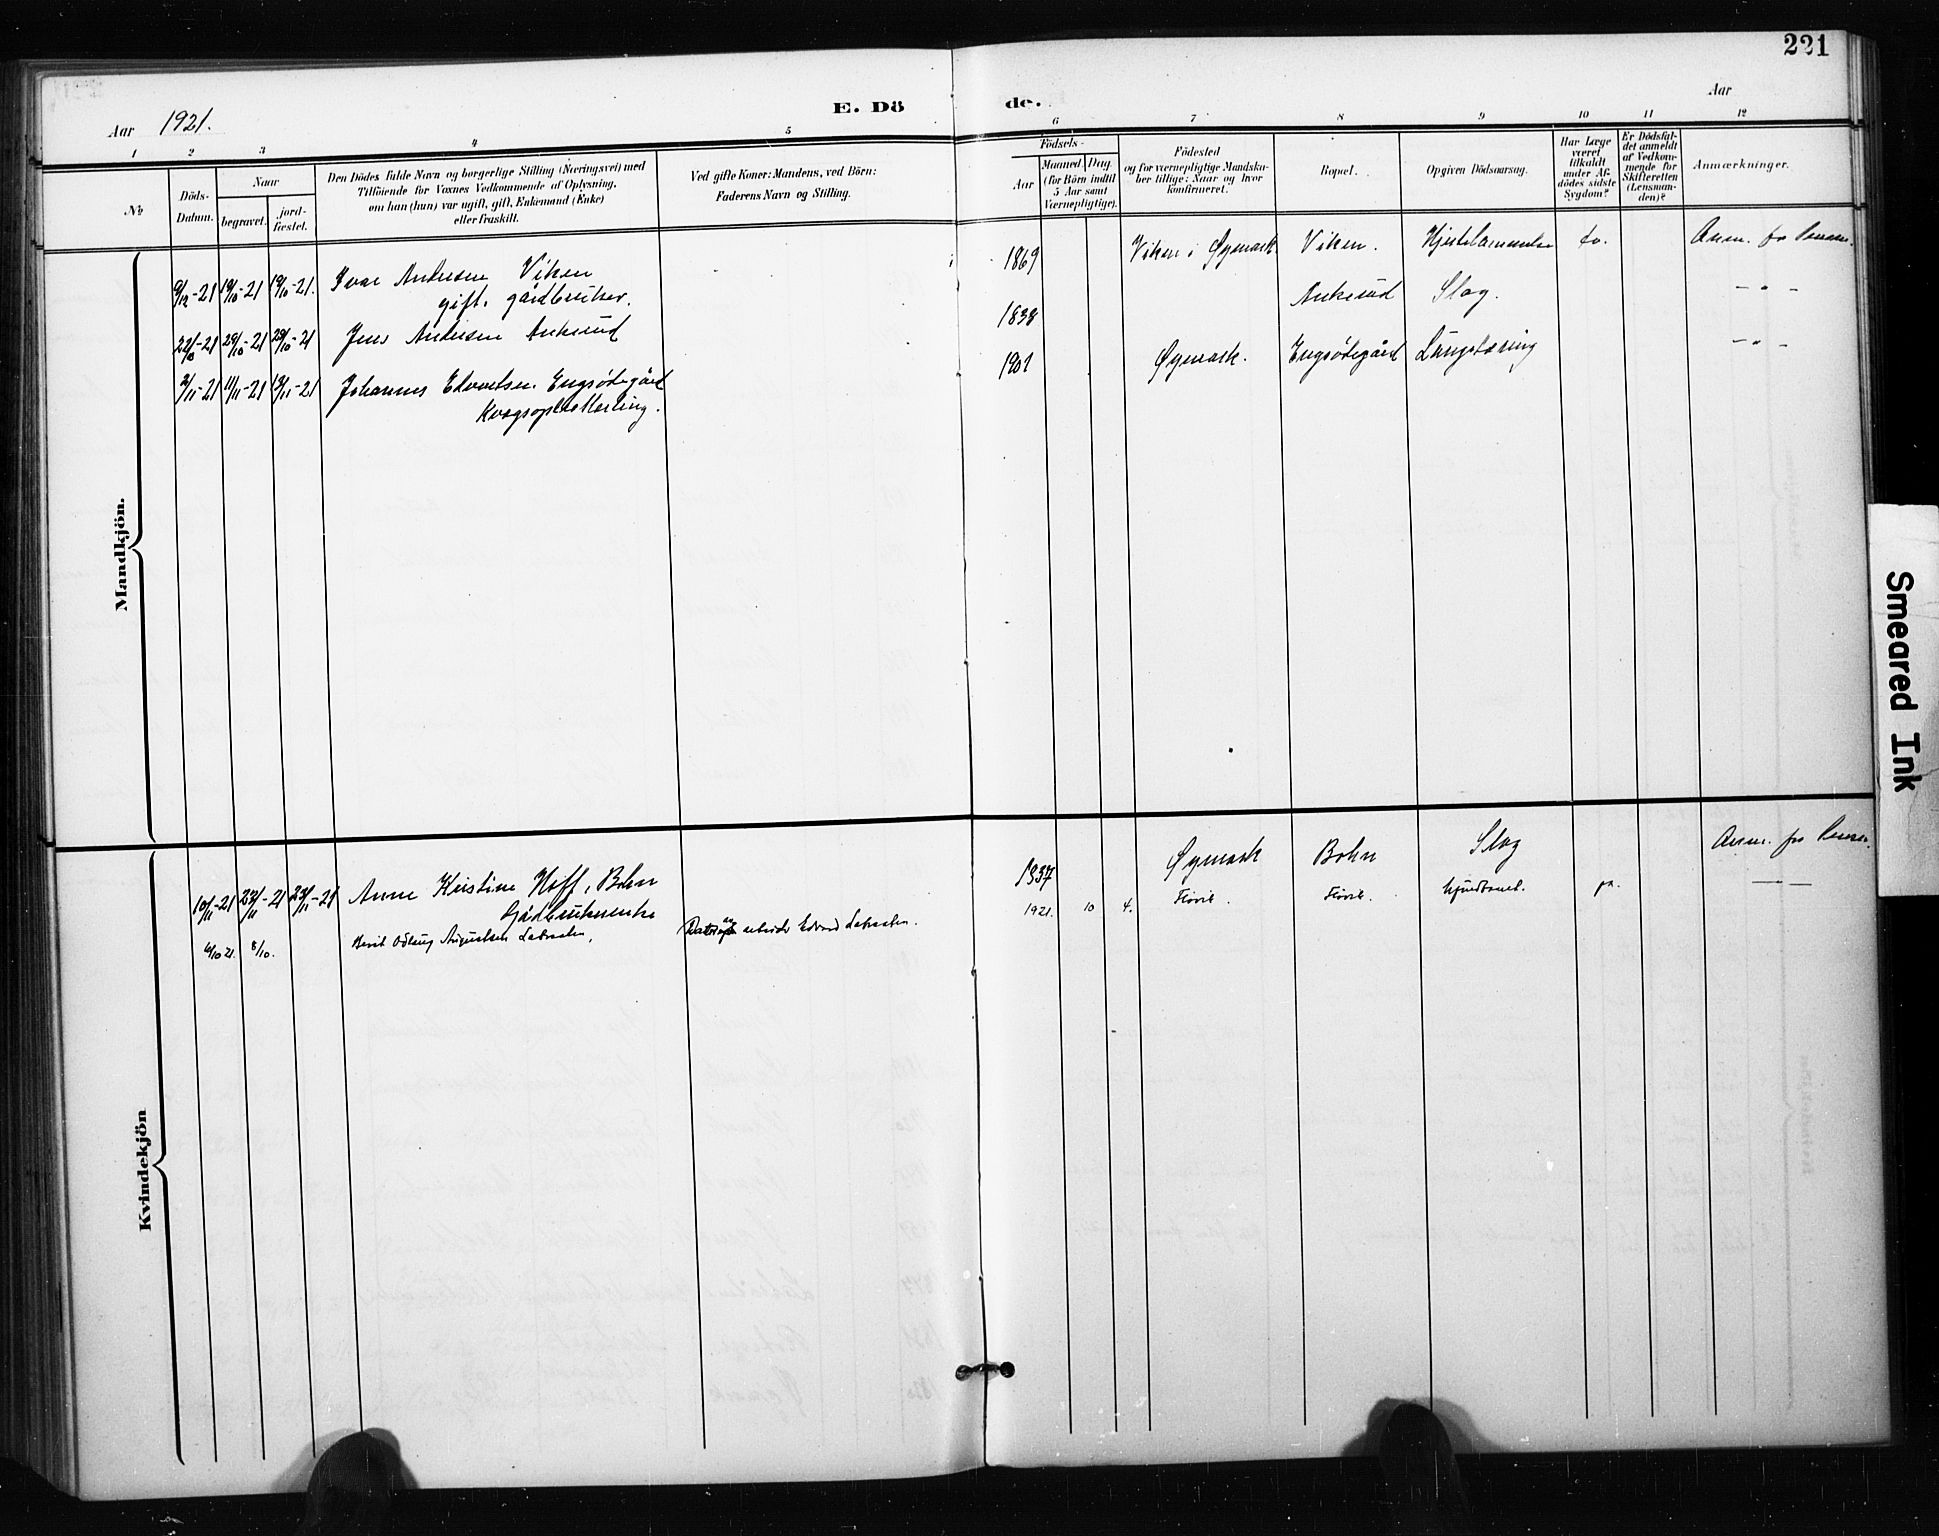 221
Aar 1921.
E. Dö
de.
Aar
1 2 3 4 5 6 7 8 9 10 11 12
No
Döds-
Datum.
Naar
begravet.
jord-
fæstet.
Den Dödes fulde Navn og borgerlige Stilling (Næringsvei) med
Tilföiende for Voxnes Vedkommende af Oplysning,
om han (hun) var ugift, gift, Enkemand (Enke)
eller fraskilt.
Ved gifte Koner: Mandens, ved Börn:
Faderens Navn og Stilling.
Födsels-
Aar
Maaned Dag
(for Börn indtil
5 Aar samt
Værnepligtige).
Födested
og for værnepligtige Mandska-
ber tillige: Naar og hvor
konfirmeret.
Bopæl.
Opgiven Dödsaarsag.
Har Læge
været
tilkaldt
under Af-
dödes sidste
Sygdom?
Er Dödsfal-
det anmeldt
af Vedkom-
mende for
Skifteretten
(Lensman-
den)?
Anmærkninger.
Mandkjön.
9/12-21 19/10-21 19/10-21. Ivar Andersen Viken 1869 Viken i Øymark Viken.
gift. gårdbruker.
22/10-21 29/10-21 29/10-21 Jens Andersen Ankerud 1838 Ankerud Slag. - " -
3/11-21 11/11-21 13/11-21 Johannes Edvardsen Engsødegård 1901 Øymark. Engsødegård Lungetæring - " -
Kvindekjön
10/11-21 23/11-21 23/11-21 Anne Kristine Hoff, Bohn 1837 Øymark Bohn Slag
Gårdbrukerenke
4/10 21. 8/10. Berit Odlaug Augustsen 1921. 10 4.
arbeider Edvard
Smeared Ink